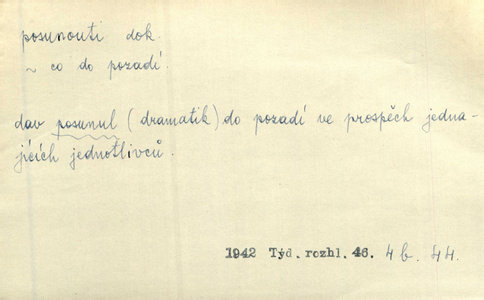 posunouti dok.
~ co do pozadí.
dav posunul (dramatik) do pozadí ve prospěch jedna-
jících jednotlivců.
1942 Týd. rozhl. 46. 4 b. 44.